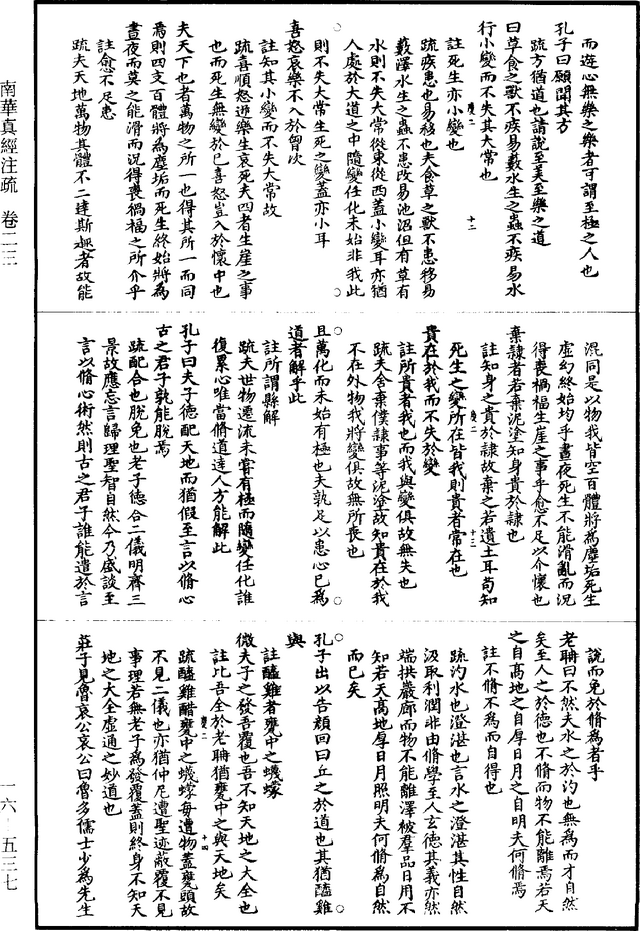 而遊心無樂之樂者可謂至極之人也
孔子曰願聞其方
疏方猶道也請說至美至樂之道
曰草食之獸不疾易藪水生之蟲不疾易水
行小變而不失其大常也
註死生亦小變也
疏疾患也易移也夫食草之獸不患移易
藪澤水生之蟲不患改易池沼但有草有
水則不失大常從東從西蓋小變耳亦猶
人處於大道之中隨變任化未始非我此
則不失大常生死之變蓋亦小耳
喜怒哀樂不入於曾次
註知其小變而不失大常故
疏喜順怒逆樂生哀死夫四者生崖之事
也而死生無變於己喜怒豈入於懷中也
夫天下也者萬物之所一也得其所一而同
焉則四支百體將為塵垢而死生終始將為
晝夜而莫之能滑而況得喪禍福之所介乎
註愈不足患
疏夫天地萬物其體不二達斯趣者故能
混同是以物我皆空百體將為塵垢死生
虛幻終始均乎晝夜死生不能滑亂而況
得喪禍福生崖之事乎愈不足以介懷也
棄隸者若棄泥塗知身貴於隸也
註知身之貴於隸故棄之若遺土耳苟知
死生之變所在皆我則貴者常在也
貴在於我而不失於變
註所貴者我也而我與變俱故無失也
疏夫舍棄僕隸事等泥塗故知貴在於我
不在外物我將變俱故無所喪也
且萬化而未始有極也夫孰足以患心已為
道者解乎此
註所謂縣解
疏夫世物遷流未嘗有極而隨變任化誰
復累心唯當脩道達人方能解此
孔子曰夫子德配天地而猶假至言以脩心
古之君子孰能脫焉
疏配合也脫免也老子德合二儀明齊三
景故應忘言歸理聖智自然今乃盛談至
言以脩心術然則古之君子誰能遣於言
說而免於脩為者乎
老聃曰不然夫水之於汋也無為而才自然
矣至人之於德也不脩而物不能離焉若天
之自高地之自厚日月之自明夫何脩焉
註不脩不為而自得也
疏汋水也澄湛也言水之澄湛其性自然
汲取利潤非由脩學至人玄德其義亦然
端拱巖廊而物不能離澤被羣品日用不
知若天高地厚日月照明夫何脩為自然
而已矣
孔子出以告顏回曰丘之於道也其猶醯雞
與
註醯雞者甕中之蠛蠓
微夫子之發吾覆也吾不知天地之大全也
註比吾全於老聃猶甕中之與天地矣
疏醯雞醋甕中之蠛蠓每遭物蓋甕頭故
不見二儀也亦猶仲尼遭聖迹蔽覆不見
事理若無老子為發覆蓋則終身不知天
地之大全虛通之妙道也
莊子見魯哀公哀公曰魯多儒士少為先生
南華真經注疏 卷二三
一六·五三七
十二
十三
十四